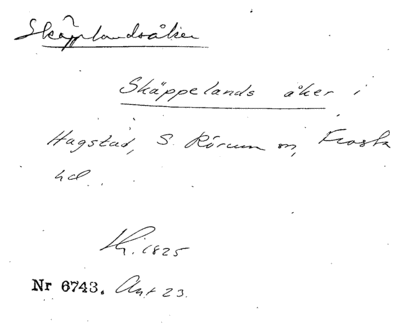 Skäpplandsåker
Skäppelands åker i
Hagstad, S. Rörum sn, Frosta
hd.
Lr. 1825
Nr 6743. Akt 23.